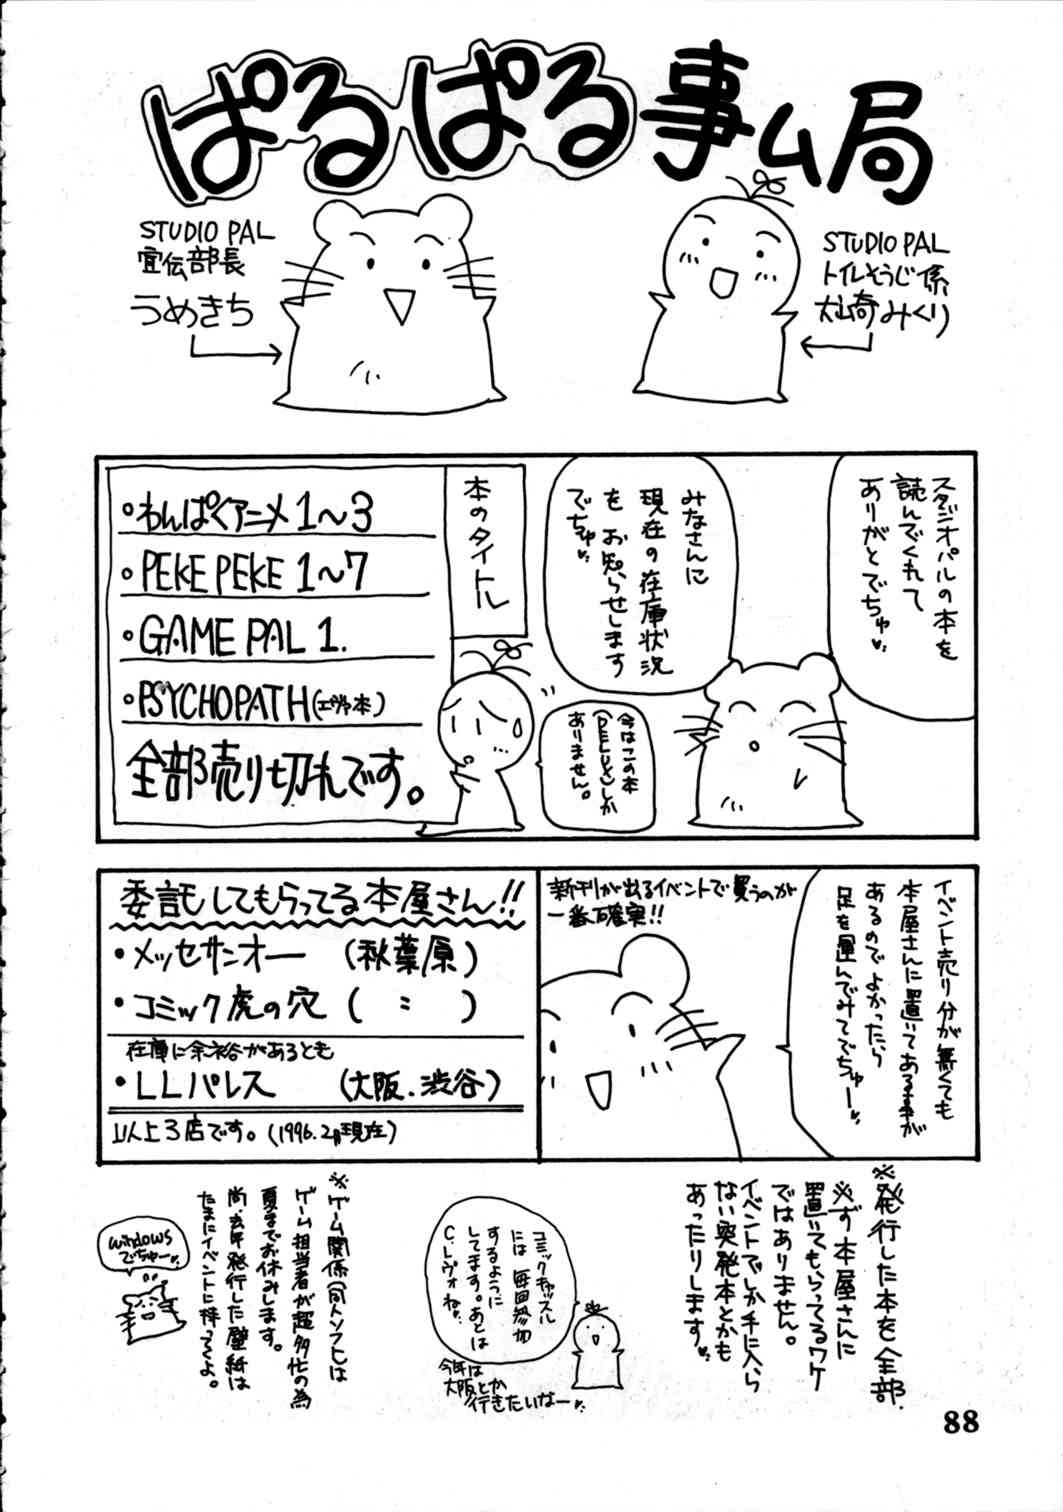 ぱるぱる事ム局
STUDIO PAL
宣伝部長
うめきち
STUDIO PAL
トイレそうじ係
大山奇みくり
スタジオパルの本を
読んでくれて
ありがとでちゅ
みなさんに
現在の在庫状況
をお知らせします
でちゅ
今はこの本
しか
ありません。
本のタイトル
・わんぱくアニメ1〜3
・PEKE PEKE 1〜7
・GAME PAL 1.
・PSYCHOPATH(エヴァ本)
全部売り切れです。
イベント売り分が無くても
本屋さんに置いてある事が
あるのでよかったら
足を運んでみてでちゅー
新刊が出るイベントで買うのが
一番確実!!
委託してもらってる本屋さん!!
・メッセサンオー (秋葉原)
・コミック虎の穴 ( 〃 )
在庫に余裕があるとも
・LLパレス (大阪.渋谷)
以上3店です。(1996.2月現在)
※発行した本を全部
必ず本屋さんに
置いてもらってるワケ
ではありません。
イベントでしか手に入ら
ない突発本とかも
あったりします。
コミックキャッスル
には毎回参加
するように
してます。あとは
C.レヴォね。
今年は
大阪とか
行きたいなー
※ゲーム関係(同人ソフト)は
ゲーム担当者が超多忙の為
夏までお休みします。
尚、去年発行した壁紙は
たまにイベントに持ってくよ。
windows
でちゅー
88